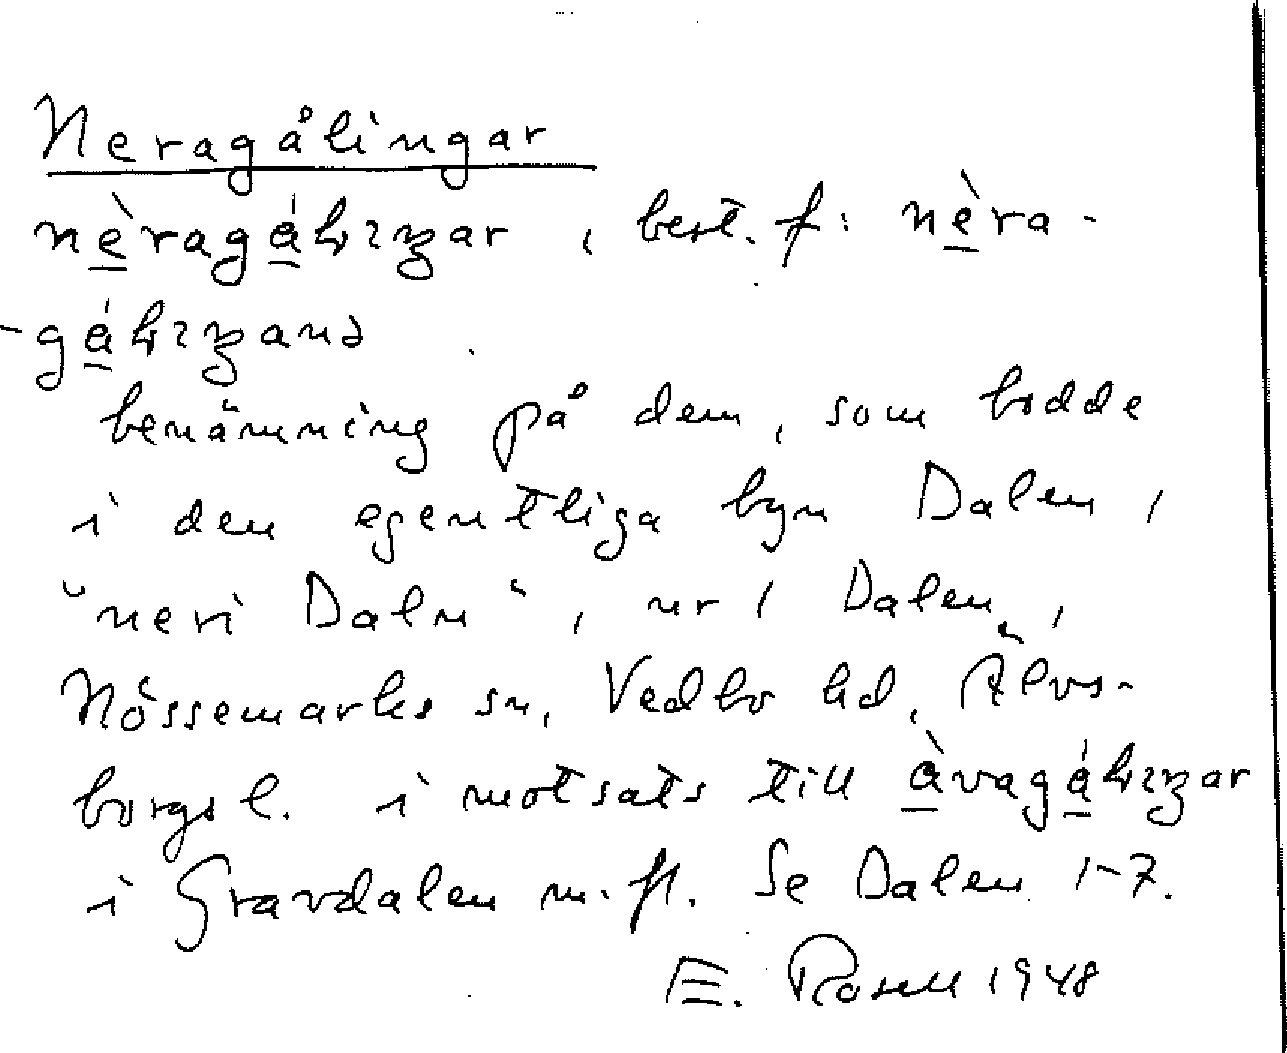 Neragålingar
nè̱ragá̱lıŋar, best. f: nè̱ra-
-gá̱lıŋanə
benämning på dem, som bodde
i den egentliga byn Dalen,
"neri Daln", nr 1 Dalen,
Nössemarks sn, Vedbo hd, Älvs-
borgs l. i motsats till à̱vagá̱lıŋar
i Gravdalen m. fl. Se Dalen 1-7.
E. Rosell 1948